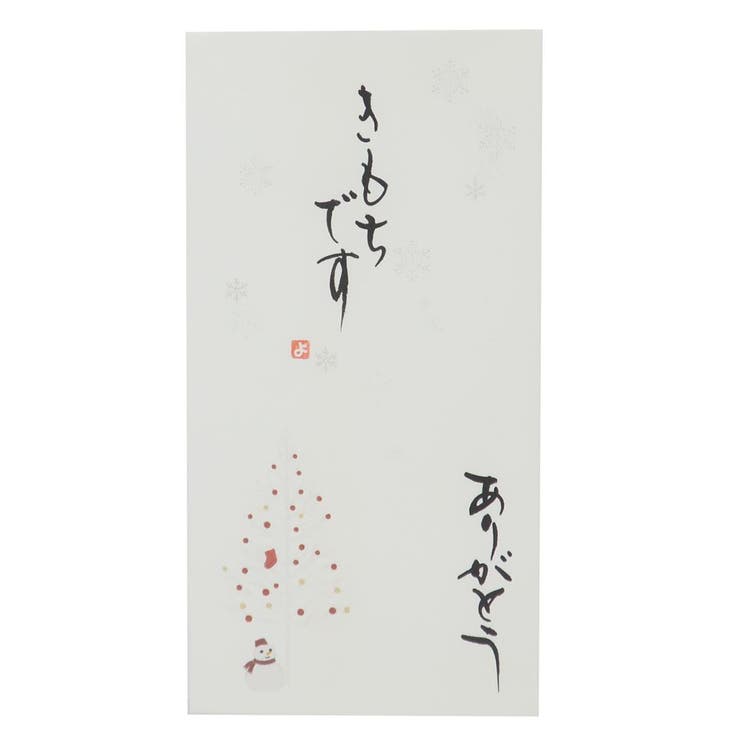 きもち
です
よ
ありがとう